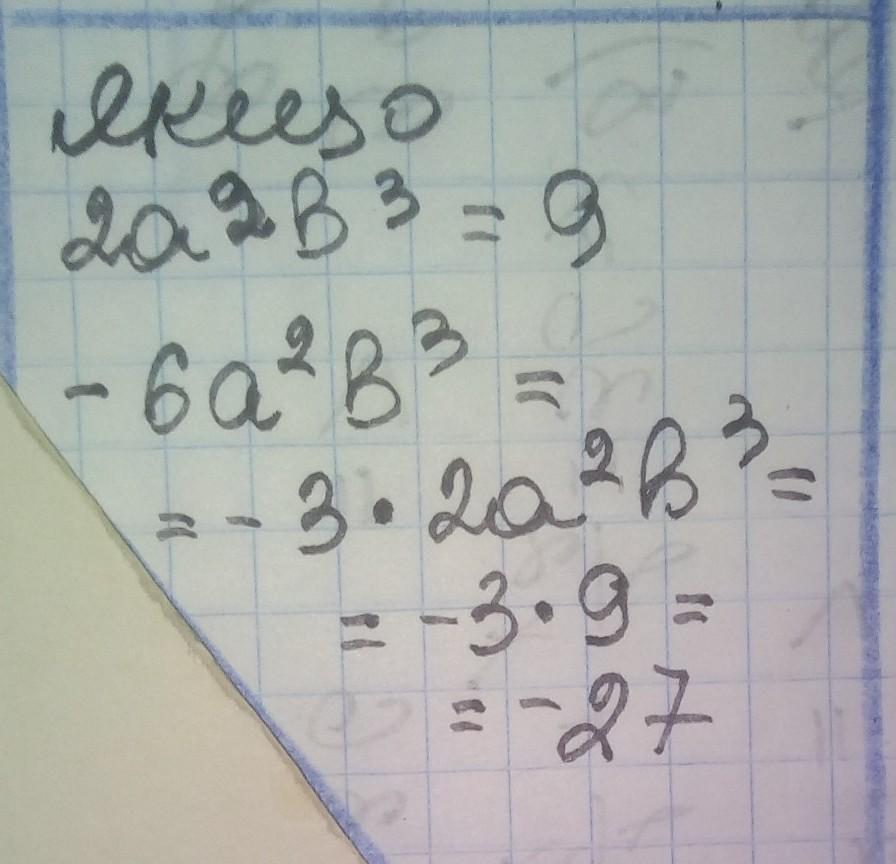 якщо
2a²b³ = 9
- 6a²b³ =
= - 3 · 2a²b³ =
= -3 · 9 =
= -27